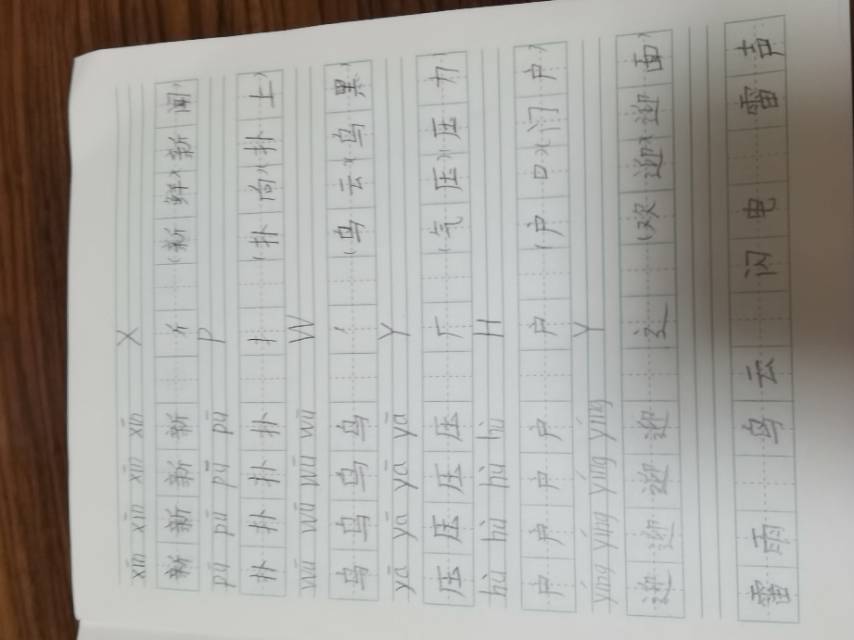 xīn xīn xīn xīn X
新新新新 斤 (新鲜)(新闻)
pū pū pū pū P
扑扑扑扑 扌 (扑向)(扑上)
wū wū wū wū W
乌乌乌乌 丿 (乌云)(乌黑)
yā yā yā yā Y
压压压压 厂 (气压)(压力)
hù hù hù hù H
户户户户 户 (户口)(门户)
yíng yíng yíng yíng Y
迎迎迎迎 辶 (欢迎)(迎面)
雷雨 乌云 闪电 雷声